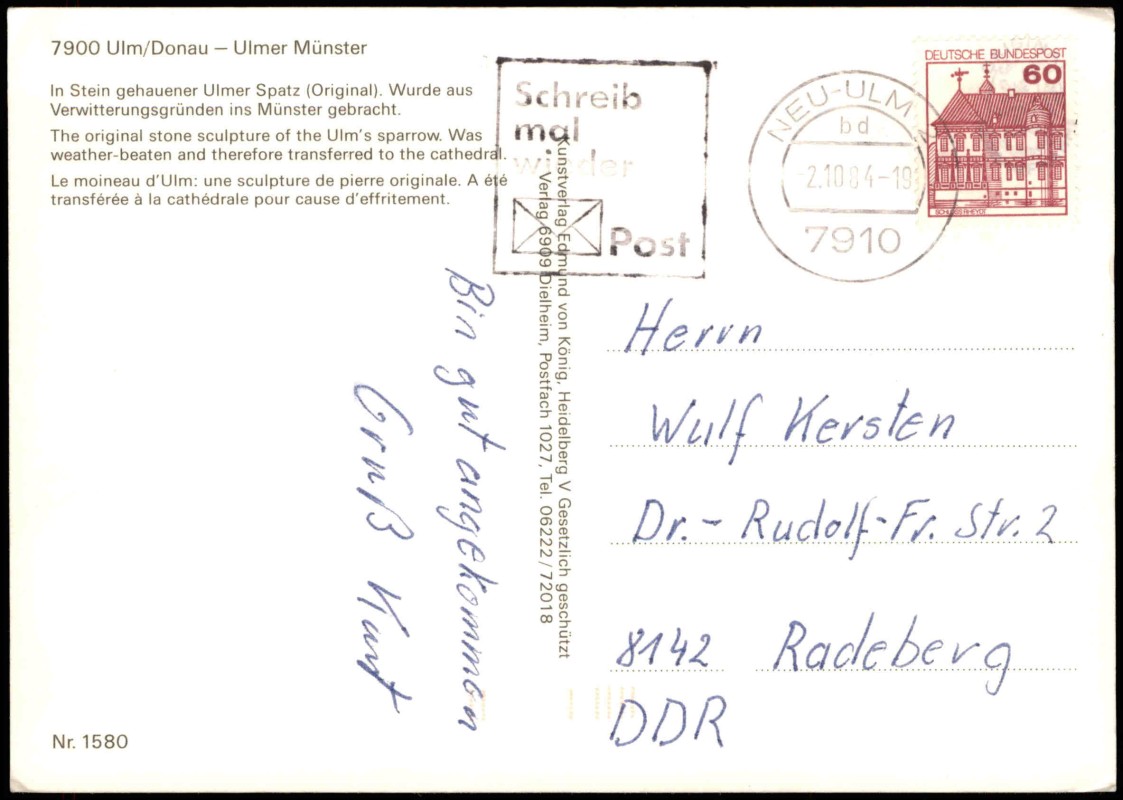 7900 Ulm/Donau – Ulmer Münster
In Stein gehauener Ulmer Spatz (Original). Wurde aus
Verwitterungsgründen ins Münster gebracht.
The original stone sculpture of the Ulm's sparrow. Was
weather-beaten and therefore transferred to the cathedral.
Le moineau d'Ulm: une sculpture de pierre originale. A été
transférée à la cathédrale pour cause d'effritement.
Schreib
mal
wieder
Post
NEU-ULM
bd
-2.10.84-19
7910
DEUTSCHE BUNDESPOST
60
SCHLOSS RHEYDT
Kunstverlag Edmund von König, Heidelberg V Gesetzlich geschützt
Verlag 6909 Dielheim, Postfach 1027, Tel. 06222/72018
Bin gut angekommen
Gruß Kurt
Herrn
Wulf Kersten
Dr.- Rudolf-Fr. Str. 2
8142 Radeberg
DDR
Nr. 1580